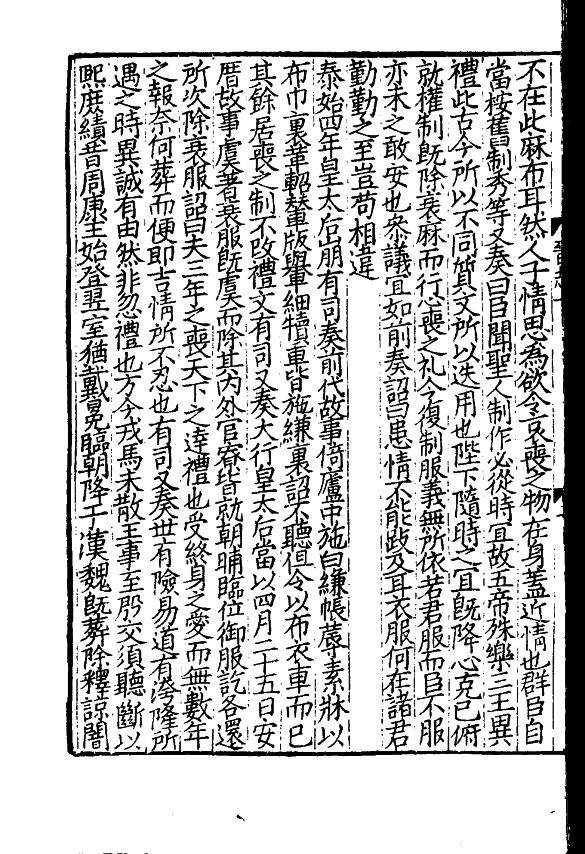 不在此麻布耳然人子情思為欲令哀喪之物在身蓋近情也群臣自
當桉舊制秀等又奏曰臣聞聖人制作必從時宜故五帝殊樂三王異
禮此古今所以不同質文所以迭用也陛下隨時之宜旣降心克己俯
就權制旣除衰麻而行心喪之礼今復制服義無所依若君服而臣不服
亦未之敢安也叅議宜如前奏詔曰患情不能跂及耳衣服何在諸君
勤勤之至豈苟相違
泰始四年皇太后崩有司奏前代故事倚廬中施白縑帳蓐素牀以
布巾裹草軺輦版轝細犢車皆施縑裏詔不聽但令以布衣車而已
其餘居喪之制不改禮文有司又奏大行皇太后當以四月二十五日安
厝故事虞著衰服旣虞而除其內外官寮皆就朝晡臨位御服訖各還
所次除衰服詔曰夫三年之喪天下之達禮也受終身之愛而無數年
之報奈何葬而便即吉情所不忍也有司又奏世有險易道有洿隆所
遇之時異誠有由然非忽禮也方今戎馬未散王事至殷交須聽斷以
熙庶績昔周康王始登翌室猶戴冕臨朝降于漢魏旣葬除釋諒闇